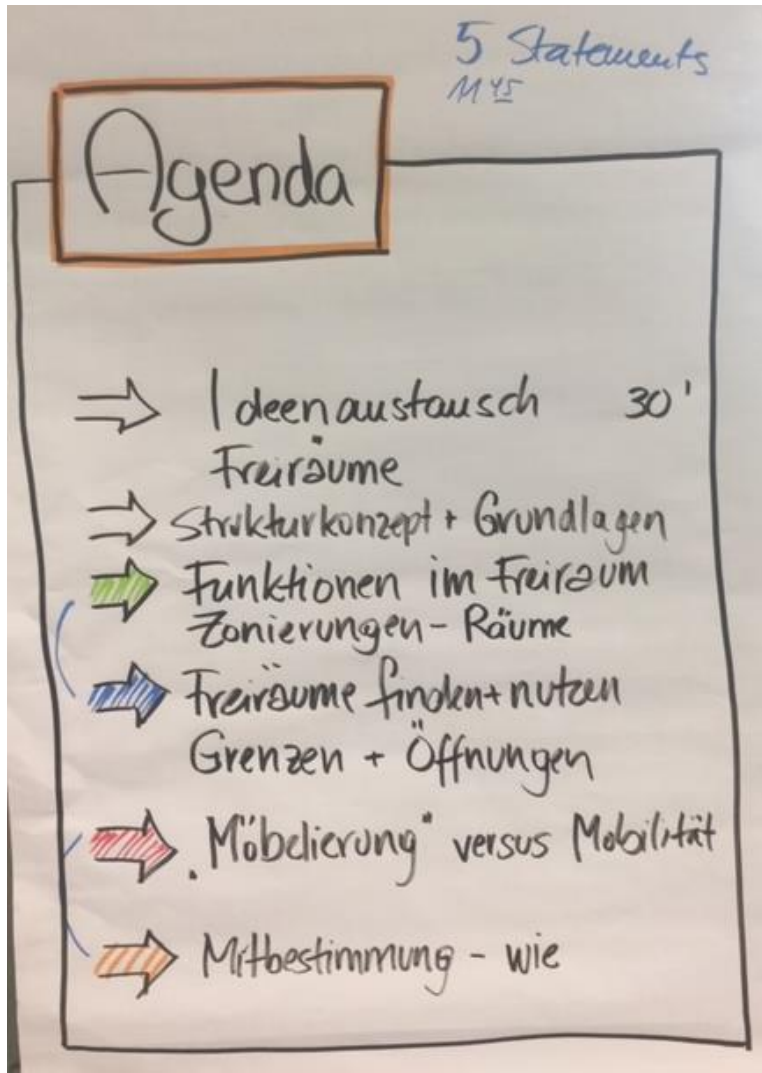 5 Statements
11 45
Agenda
Ideenaustausch 30'
Freiräume
Strukturkonzept + Grundlagen
Funktionen im Freiraum
Zonierungen - Räume
Freiräume finden + nutzen
Grenzen + Öffnungen
„Möbelierung" versus Mobilität
Mitbestimmung - wie